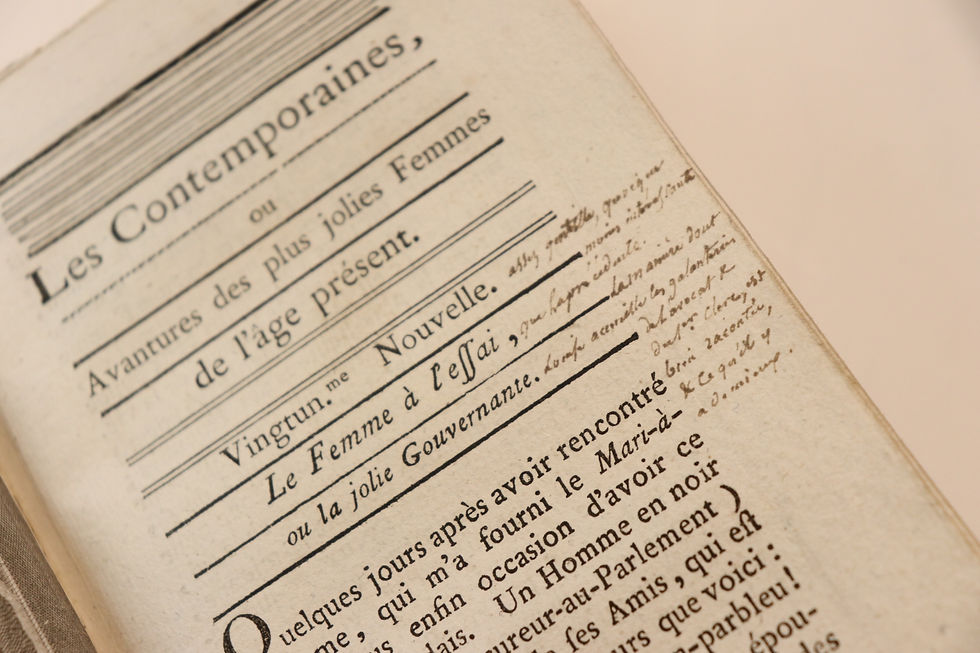 Les Contemporaines,
ou
Avantures des plus jolies Femmes
de l'âge présent.
Vingtun.me Nouvelle.
Le Femme à l'eſſai,
ou la jolie Gouvernante.
assez gentille, quoique
moins intéressante
que la précédente.
la manière dont
les galanteries
de l'avocat &
du Sr Clerc est
bien racontée,
& ce qu'il y
a de mieux.
Quelques jours après avoir rencontré
me, qui m'a fourni le Mari-à-
us enfin occasion d'avoir ce
lais. Un Homme en noir
ureur-au-Parlement )
e ſes Amis, qui eſt
urs que voici :
n-parbleu!
épou-
des